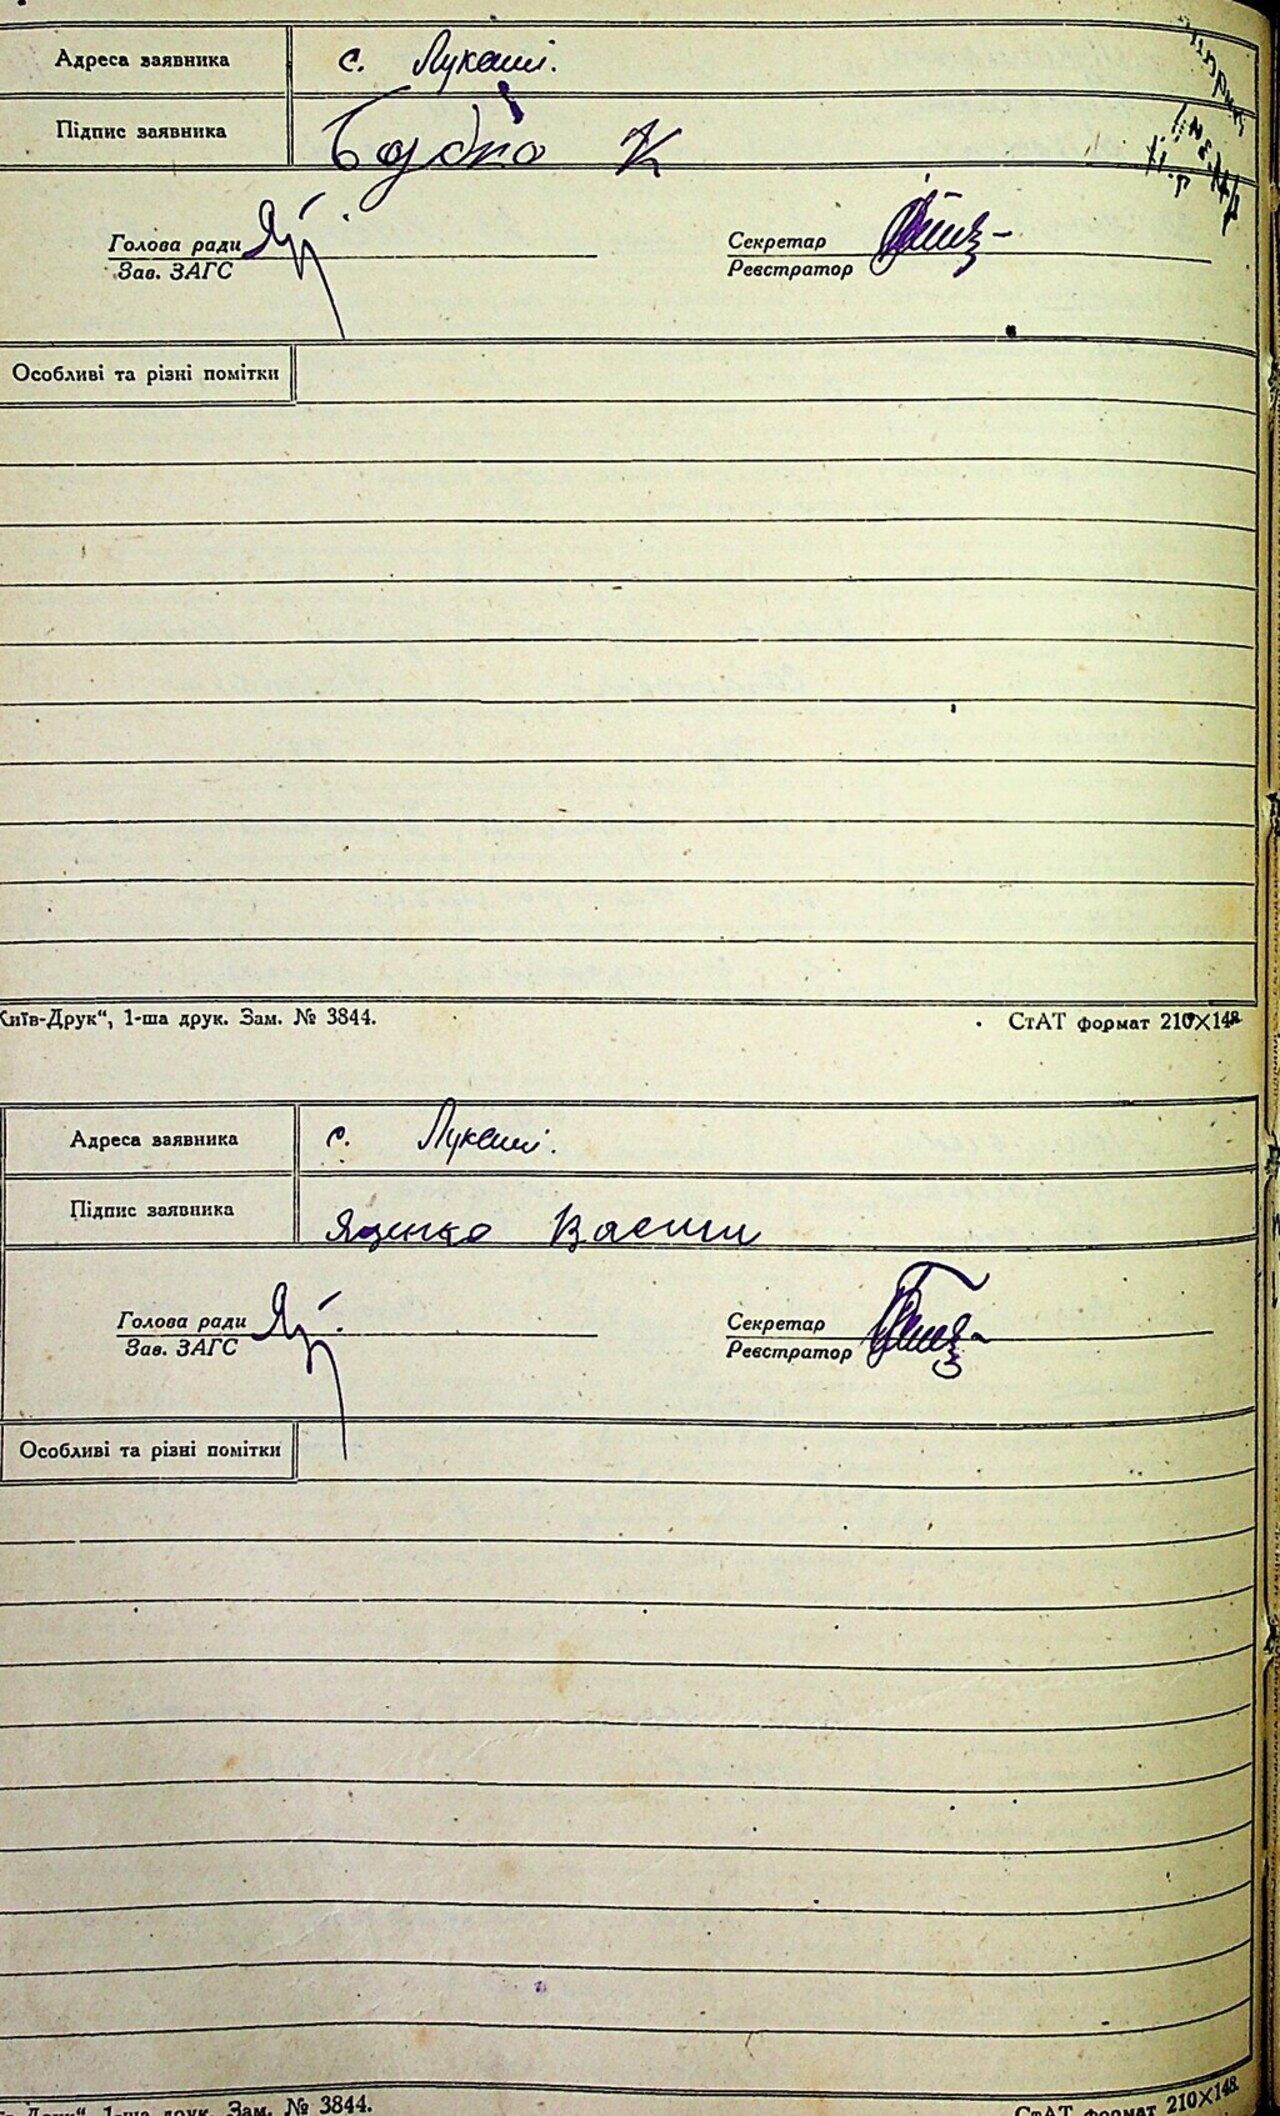 Адреса заявника с. Лукаші.
Підпис заявника Бойко К
Голова ради
Зав. ЗАГС
Секретар
Реєстратор
Особливі та різні помітки
Київ-Друк“, 1-ша друк. Зам. № 3844.
СтАТ формат 210×148
Адреса заявника с. Лукаші.
Підпис заявника Яценко Васили
Голова ради
Зав. ЗАГС
Секретар
Реєстратор
Особливі та різні помітки
Друк“, 1-ша друк. Зам. № 3844.
СтАТ формат 210×148